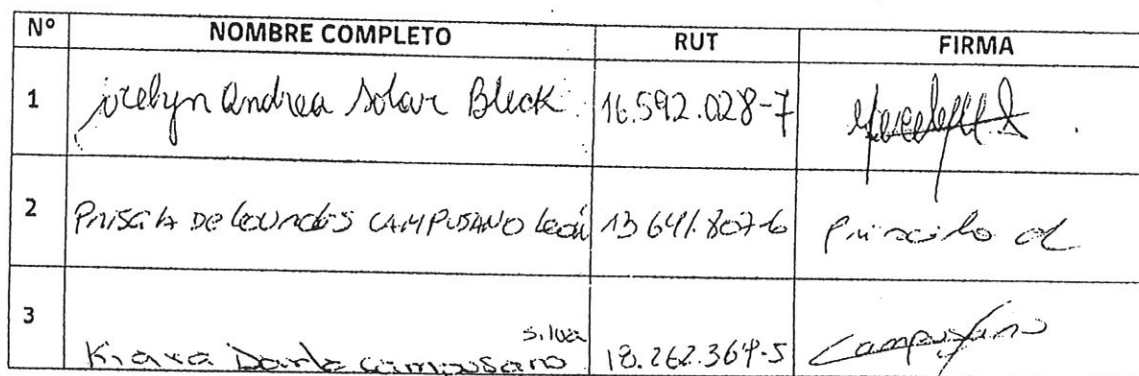 Nº NOMBRE COMPLETO RUT FIRMA
1 jocelyn Andrea Solar Bleck 16.592.028-7
2 Priscila De Lourdes CAMPUSANO León 13.641.807-6 Priscila d
3 Kiara Darla campusano Silva 18.262.364-5 Campusano